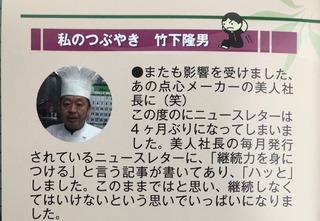 私のつぶやき 竹下隆男
●またも影響を受けました、
あの点心メーカーの美人社
長に（笑）
この度のにニュースレターは
４ヶ月ぶりになってしまいま
した。美人社長の毎月発行
されているニュースレターに、「継続力を身に
つける」と言う記事が書いてあり、「ハッと」
しました。このままではと思い、継続しなく
てはいけないという思いでいっぱいになりま
した。